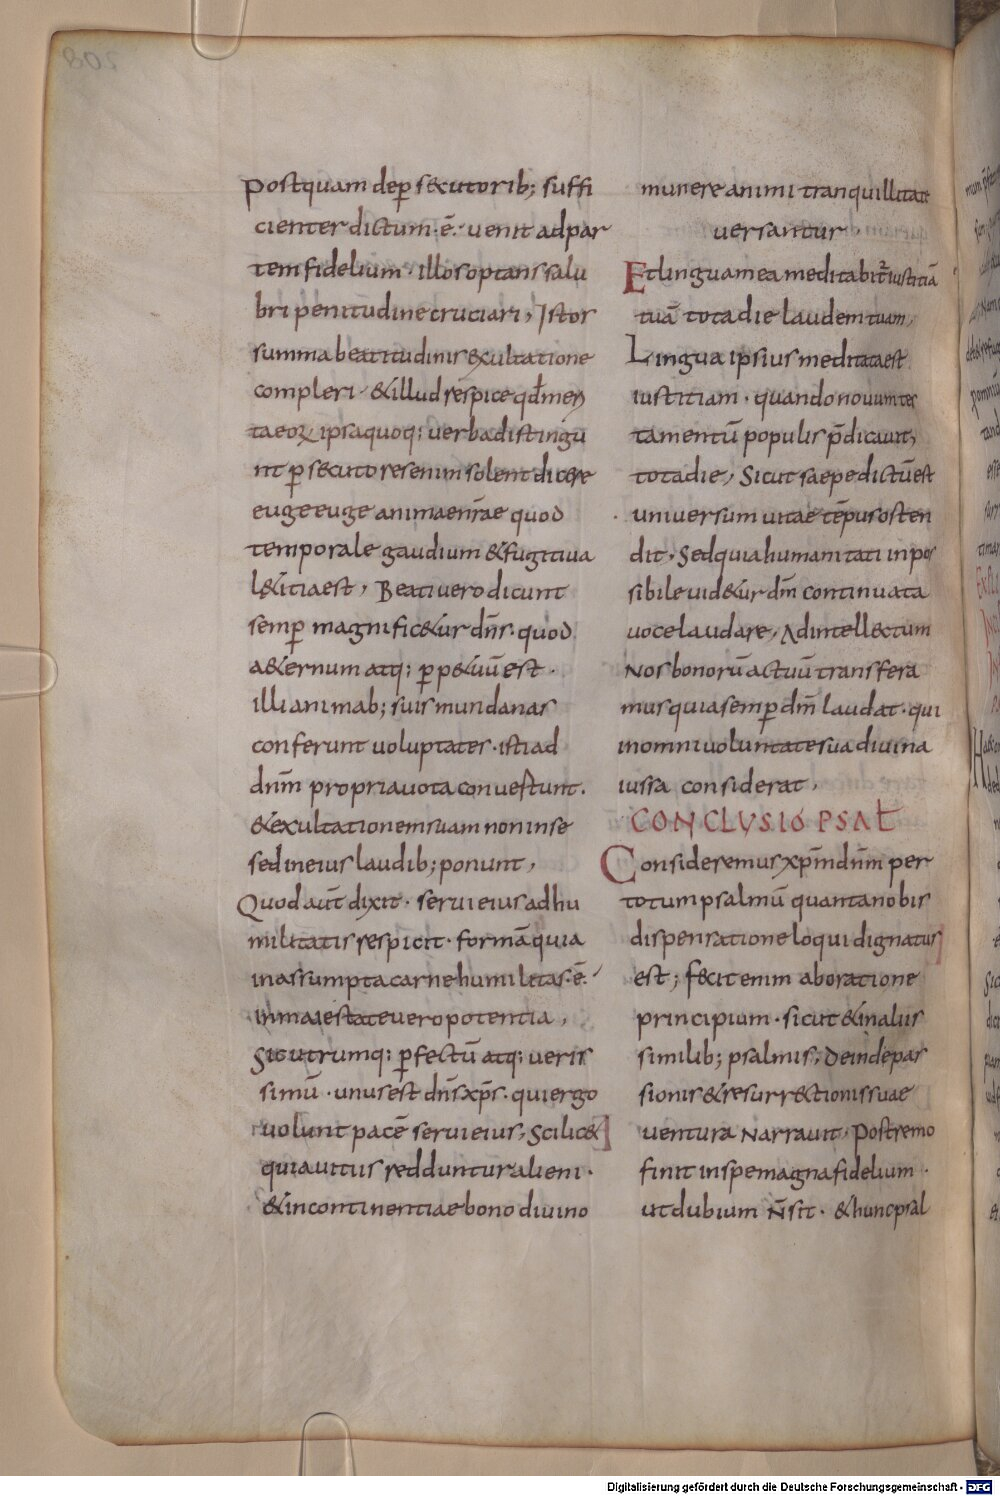 Postquam dep̲ secutorib; suffi
cienter dictum·ē· uenit adpar
tem fidelium· illos optans salu
bri penitudine cruciari, Istos
summa beatitudinis &xultatione
compleri· & illud respice qđ men
taeoꝝ ipsa quoq; uerba distingu
nt p̲secutores enim solent dicere
euge euge animae nr̄ae quod
temporale gaudium & fugitiua
l&itia est, Beati uero dicunt
semp̲ magnific&ur dn̄s· quod
a&ernum atq; p̲p&uū est·
illi animab; suis mundanas
conferunt uoluptates· isti ad
dnm̄ propria uota conuestunt·
& exultationem suam non in se
sed in eius laudib; ponunt,
Quod aut̄ dixit· serui eius ad hu
militatis respicit· formā quia
in assumpta carne humilitas·ē·
in maiestate uero potentia,
Sit utrumq; p̲fectū atq; ueris
simū· unus est dn̄s xp̄s· qui ergo
uolunt pacē serui eius, Scilic&
qui a uitiis redduntur alieni·
& in continentiae bono diuino
munere animi tranquillitate
uersantur·
Et lingua mea meditabit̄ iustitiā
tuā tota die laudem tuam,
Lingua ipsius meditata est
iustitiam· quando nouum tes
tamentū populis p̄dicauit,
tota die, Sicut saepe dictū est
uniuersum uitae tēpus osten
dit· Sed quia humanitati inpos
sibile uid&ur dm̄ continuata
uoce laudare, Ad intellectum
Nos bonorū actuū transfera
mus quia semp̲ dm̄ laudat· qui
in omni uoluntate sua diuina
iussa considerat,
CONCLUSIO PSAŁ
Consideremus xp̄m dnm̄ per
totum psalmū quanta nobis
dispensatione loqui dignatus
est; fecit enim ab oratione
principium· sicut & in aliis
similib; psalmis; deinde pas
sionis & resurr&ctionis suae
uentura Narrauit· Postremo
finit in spe magna fidelium·
ut dubium N̄ sit· & hunc psal
Digitalisierung gefördert durch die Deutsche Forschungsgemeinschaft - DFG